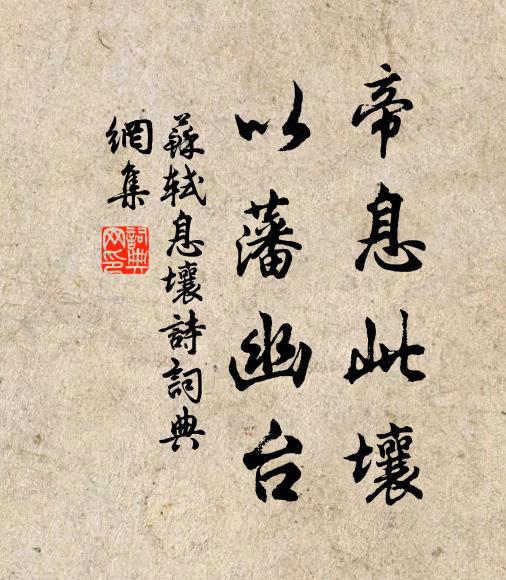 帝息此壤
以藩幽台
蘇軾息壤詩詞典
網集
詞典
网印